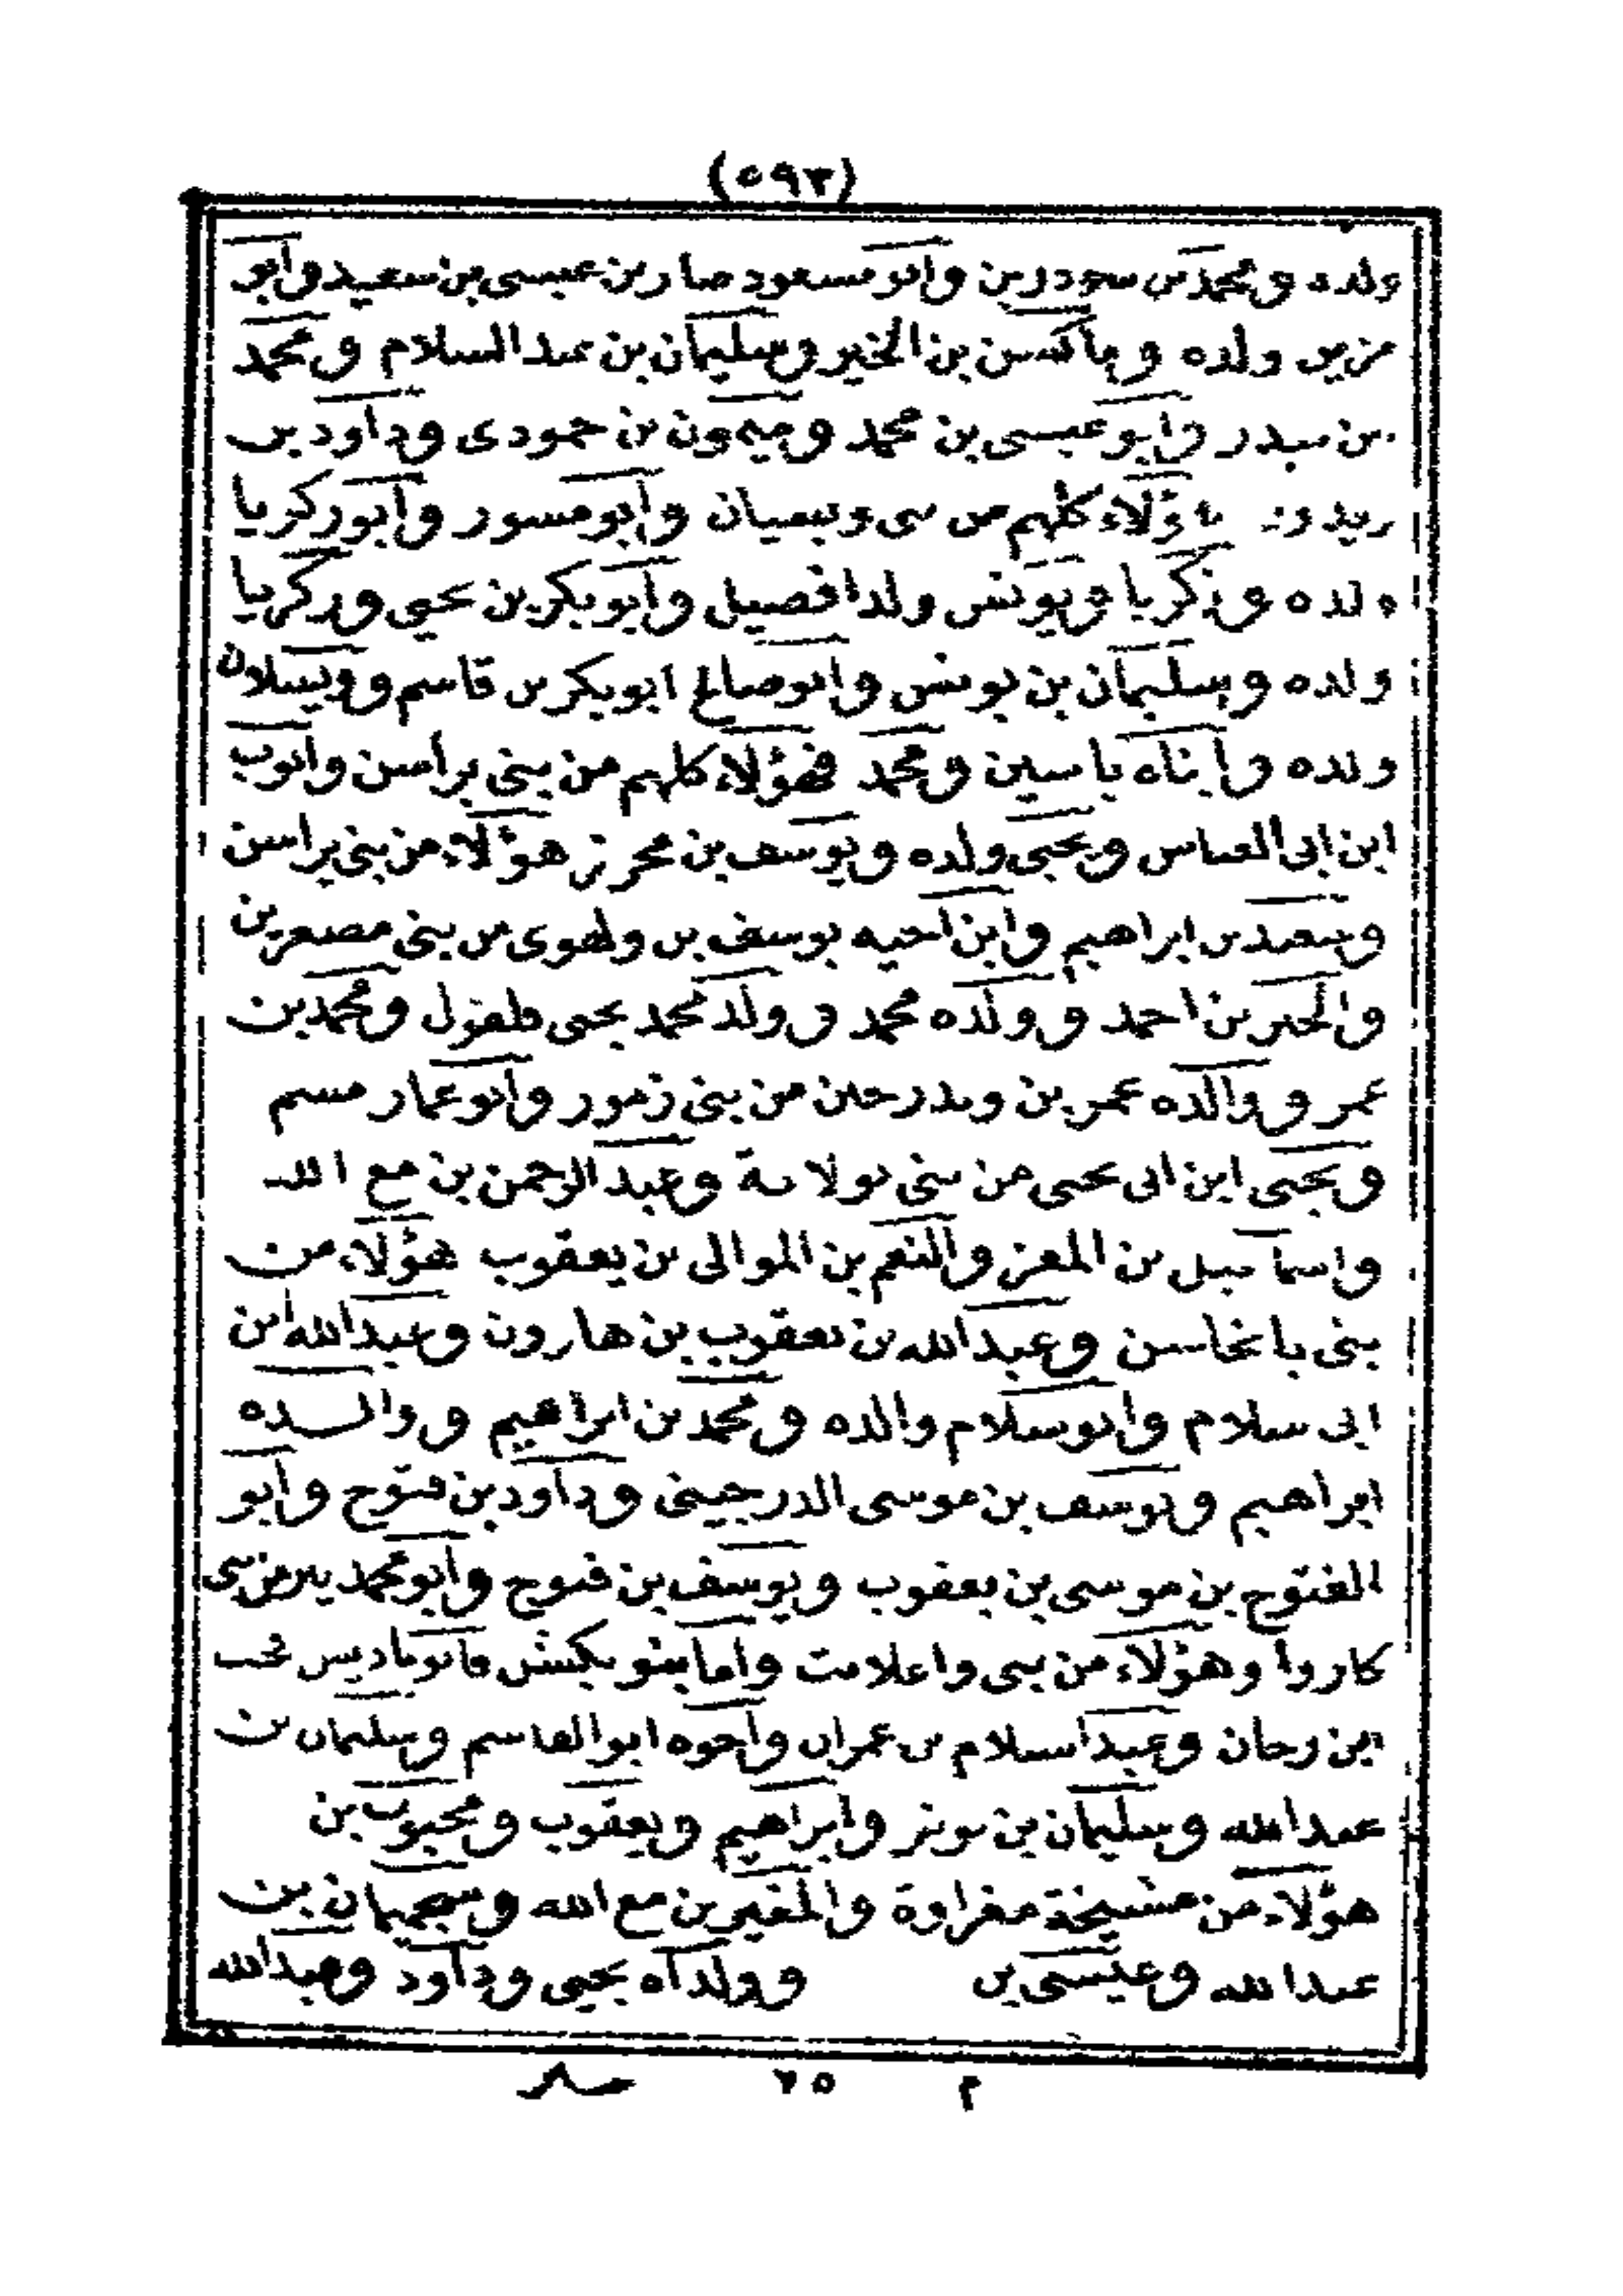 (٥٩٣)
ولده ومحمد بن وابو مسعود صابر بن عيسى بن سعيد وابو
ولده وماكسن بن الخير وسليمان بن عبد السلام ومحمد
بن سدر وابو عيسى بن محمد وميمون بن حمودى وداود بن
هؤلاء كلهم من وابو مسور وابو زكريا
ولده وزكريا ويونس ولدا فصيل وابو بكر بن يحيى وزكريا
ولده وسليمان بن يونس وابو صالح ابو بكر بن قاسم وويسلان
ولده وابناه ياسين ومحمد فهؤلاء كلهم من بنى يراسن وايوب
ابن ابى العباس ويحيى ولده ويوسف بن محرز هؤلاء من بنى يراسن
وسعيد بن ابراهيم وابن اخيه يوسف بن من بنى
والخير بن احمد وولده محمد وولد محمد يحيى ومحمد بن
عمر ووالده عمر بن من بنى زمور وابو عمار
ويحيى ابن ابى يحيى من بنى وعبد الرحمن بن مع الله
واسماعيل بن المعز والنعم بن الموالى بن يعقوب هؤلاء من
بنى وعبد الله بن يعقوب بن هارون وعبد الله ابن
ابى سلام وابو سلام والده ومحمد بن ابراهيم ووالده
ابراهيم ويوسف بن موسى الدرجينى وداود بن فتوح وابو
الفتوح بن موسى بن يعقوب ويوسف بن فتوح وابو محمد
كاروا وهؤلاء من بنى واعلامت واما بنو
ابن رحان وعبد السلام بن عمران واخوه ابو القاسم وسليمان بن
عبد الله وسليمان بن وابراهيم ويعقوب ومحبوب بن
هؤلاء من مشيخة مغراوة والمغير بن مع الله بن
عبد الله وعيسى بن وولداه يحيى وداود وعبد الله
م ٢٥ سير